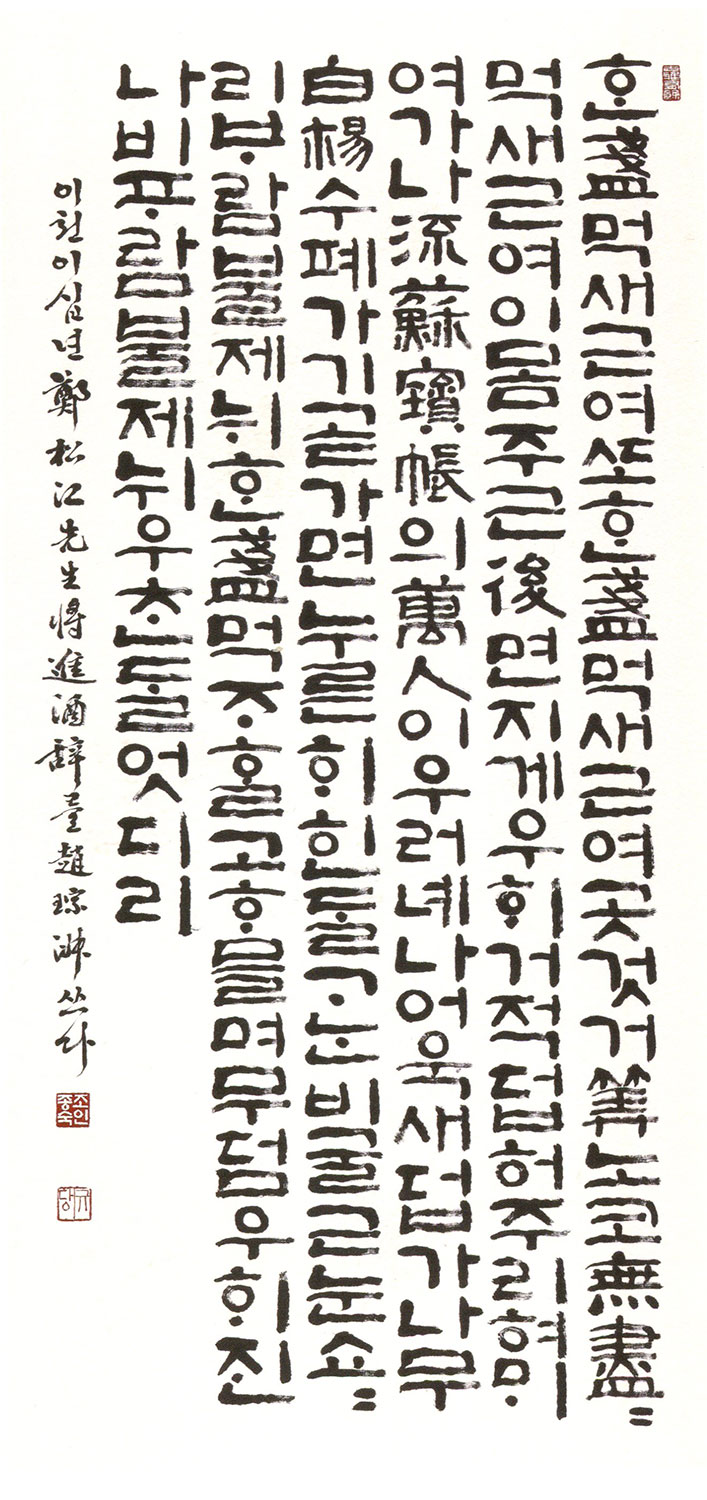 ᄒᆞᆫ盞먹새근여ᄯᅩᄒᆞᆫ盞먹새근여곳것거筭노코無盡〻
먹새근여이몸주근後면지게우ᄒᆡ거적덥허주리혀ᄆᆡ
여가나流蘇寶帳의萬人이우러녜나어욱새덥가나무
白楊수폐가기곧가면누른ᄒᆡᄒᆡᆫᄃᆞᆯᄀᆞᄂᆞᆫ비굴근눈쇼〻
리ᄇᆞ람불제뉘ᄒᆞᆫ盞먹ᄌᆞᄒᆞᆯ고ᄒᆞ믈며무덤우ᄒᆡ진
나비ᄑᆞ람불제뉘우ᄎᆞᆫᄃᆞᆯ엇디리
이천이십년鄭松江先生將進酒辭를趙琮淑쓰다
조인종숙